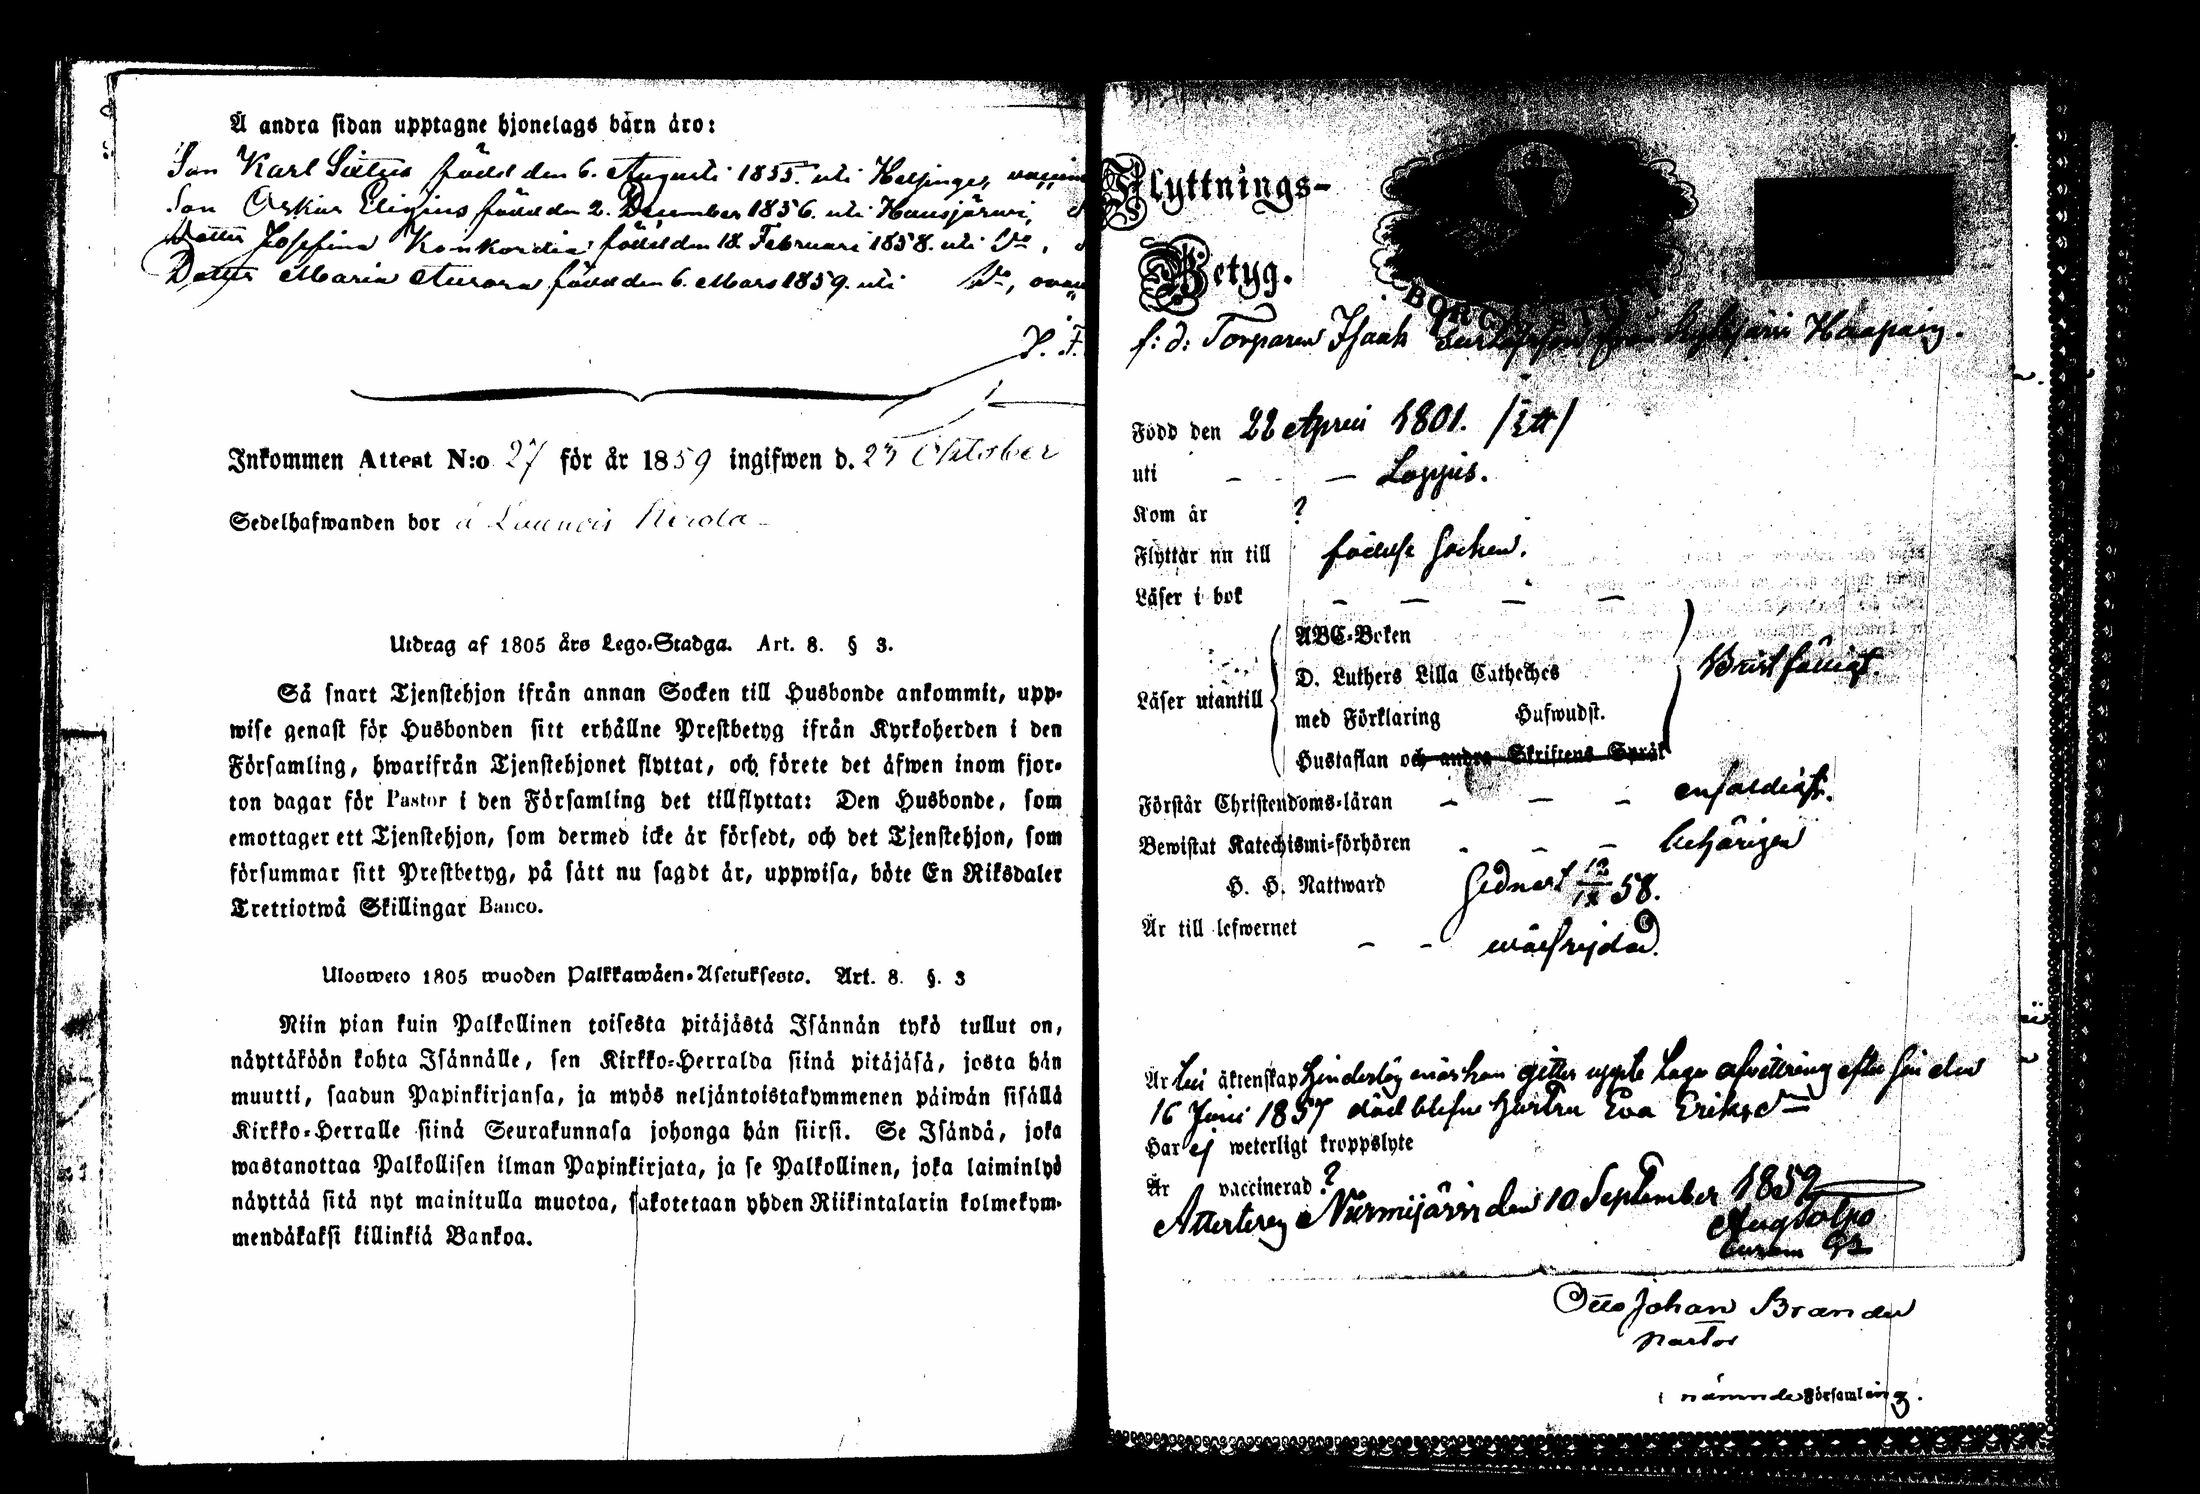 Å andra sidan upptagne hjonelags barn äro:
Son Karl född den 6. Augusti 1855. uti Helsinge,
Son Oskar Eligius född den 2. December 1856. uti Hausjärwi,
Dotter Josefina Konkordia född den 18 Februari 1858. uti Do,
Dotter Maria Aurora född den 6. Mars 1859. uti Do,
Inkommen Attest N:o 27 för år 1859 ingifwen d. 25 Oktober
Sedelhafwanden bor å
Utdrag af 1805 års Lego-Stadga. Art. 8. § 3.
Så snart Tjenstehjon ifrån annan Socken till Husbonde ankommit, upp-
wise genast för Husbonden sitt erhållne Prestbetyg ifrån Kyrkoherden i den
Församling, hwarifrån Tjenstehjonet flyttat, och förete det äfwen inom fjor-
ton dagar för Pastor i den Församling det tillflyttat: Den Husbonde, som
emottager ett Tjenstehjon, som dermed icke är försedt, och det Tjenstehjon, som
försummar sitt Prestbetyg, på sätt nu sagdt är, uppwisa, böte En Riksdaler
Trettiotwå Skillingar Banco.
Ulosweto 1805 wuoden Palkkawäen-Asetuksesta. Art. 8. §. 3
Niin pian kuin Palkollinen toisesta pitäjästä Isännän tykö tullut on,
näyttäköön kohta Isännälle, sen Kirkko-Herralda siinä pitäjäsä, josta hän
muutti, saadun Papinkirjansa, ja myös neljäntoistakymmenen päiwän sisällä
Kirkko-Herralle siinä Seurakunnasa johonga hän siirsi. Se Isändä, joka
wastanottaa Palkollisen ilman Papinkirjata, ja se Palkollinen, joka laiminlyö
näyttää sitä nyt mainitulla muotoa, sakotetaan yhden Riikintalarin kolmekym-
mendäkaksi killinkiä Bankoa.
Flyttnings-
Betyg.
f: d: Torparen Isaak från
Född den 22 April 1801. /Ett/
uti — — Loppis.
Kom år ?
Flyttar nu till födelse Socken.
Läser i bok — — — —
Läser utantill
ABC-Boken
D. Luthers Lilla Catheches
med Förklaring Hufwudst.
Hustaflan och andra Skriftens Språk
Bristfälligt.
Förstår Christendoms-läran — — — enfaldigt.
Bewistat Katechismi-förhören - — — behörigen
H. H. Nattward sednast 12/IX 58.
Är till lefwernet — - wälfrejdad.
Är till äktenskap hinderslös när han gitter uppte Laga afwittring efter sin den
16 Juni 1857 död blefne hustru Eva Eriksdr
Har ej weterligt kroppslyte
Är vaccinerad ?
Attesterar Nurmijärvi den 10 September 1859
Otto Johan Brander
Pastor
i nämnde Församling.